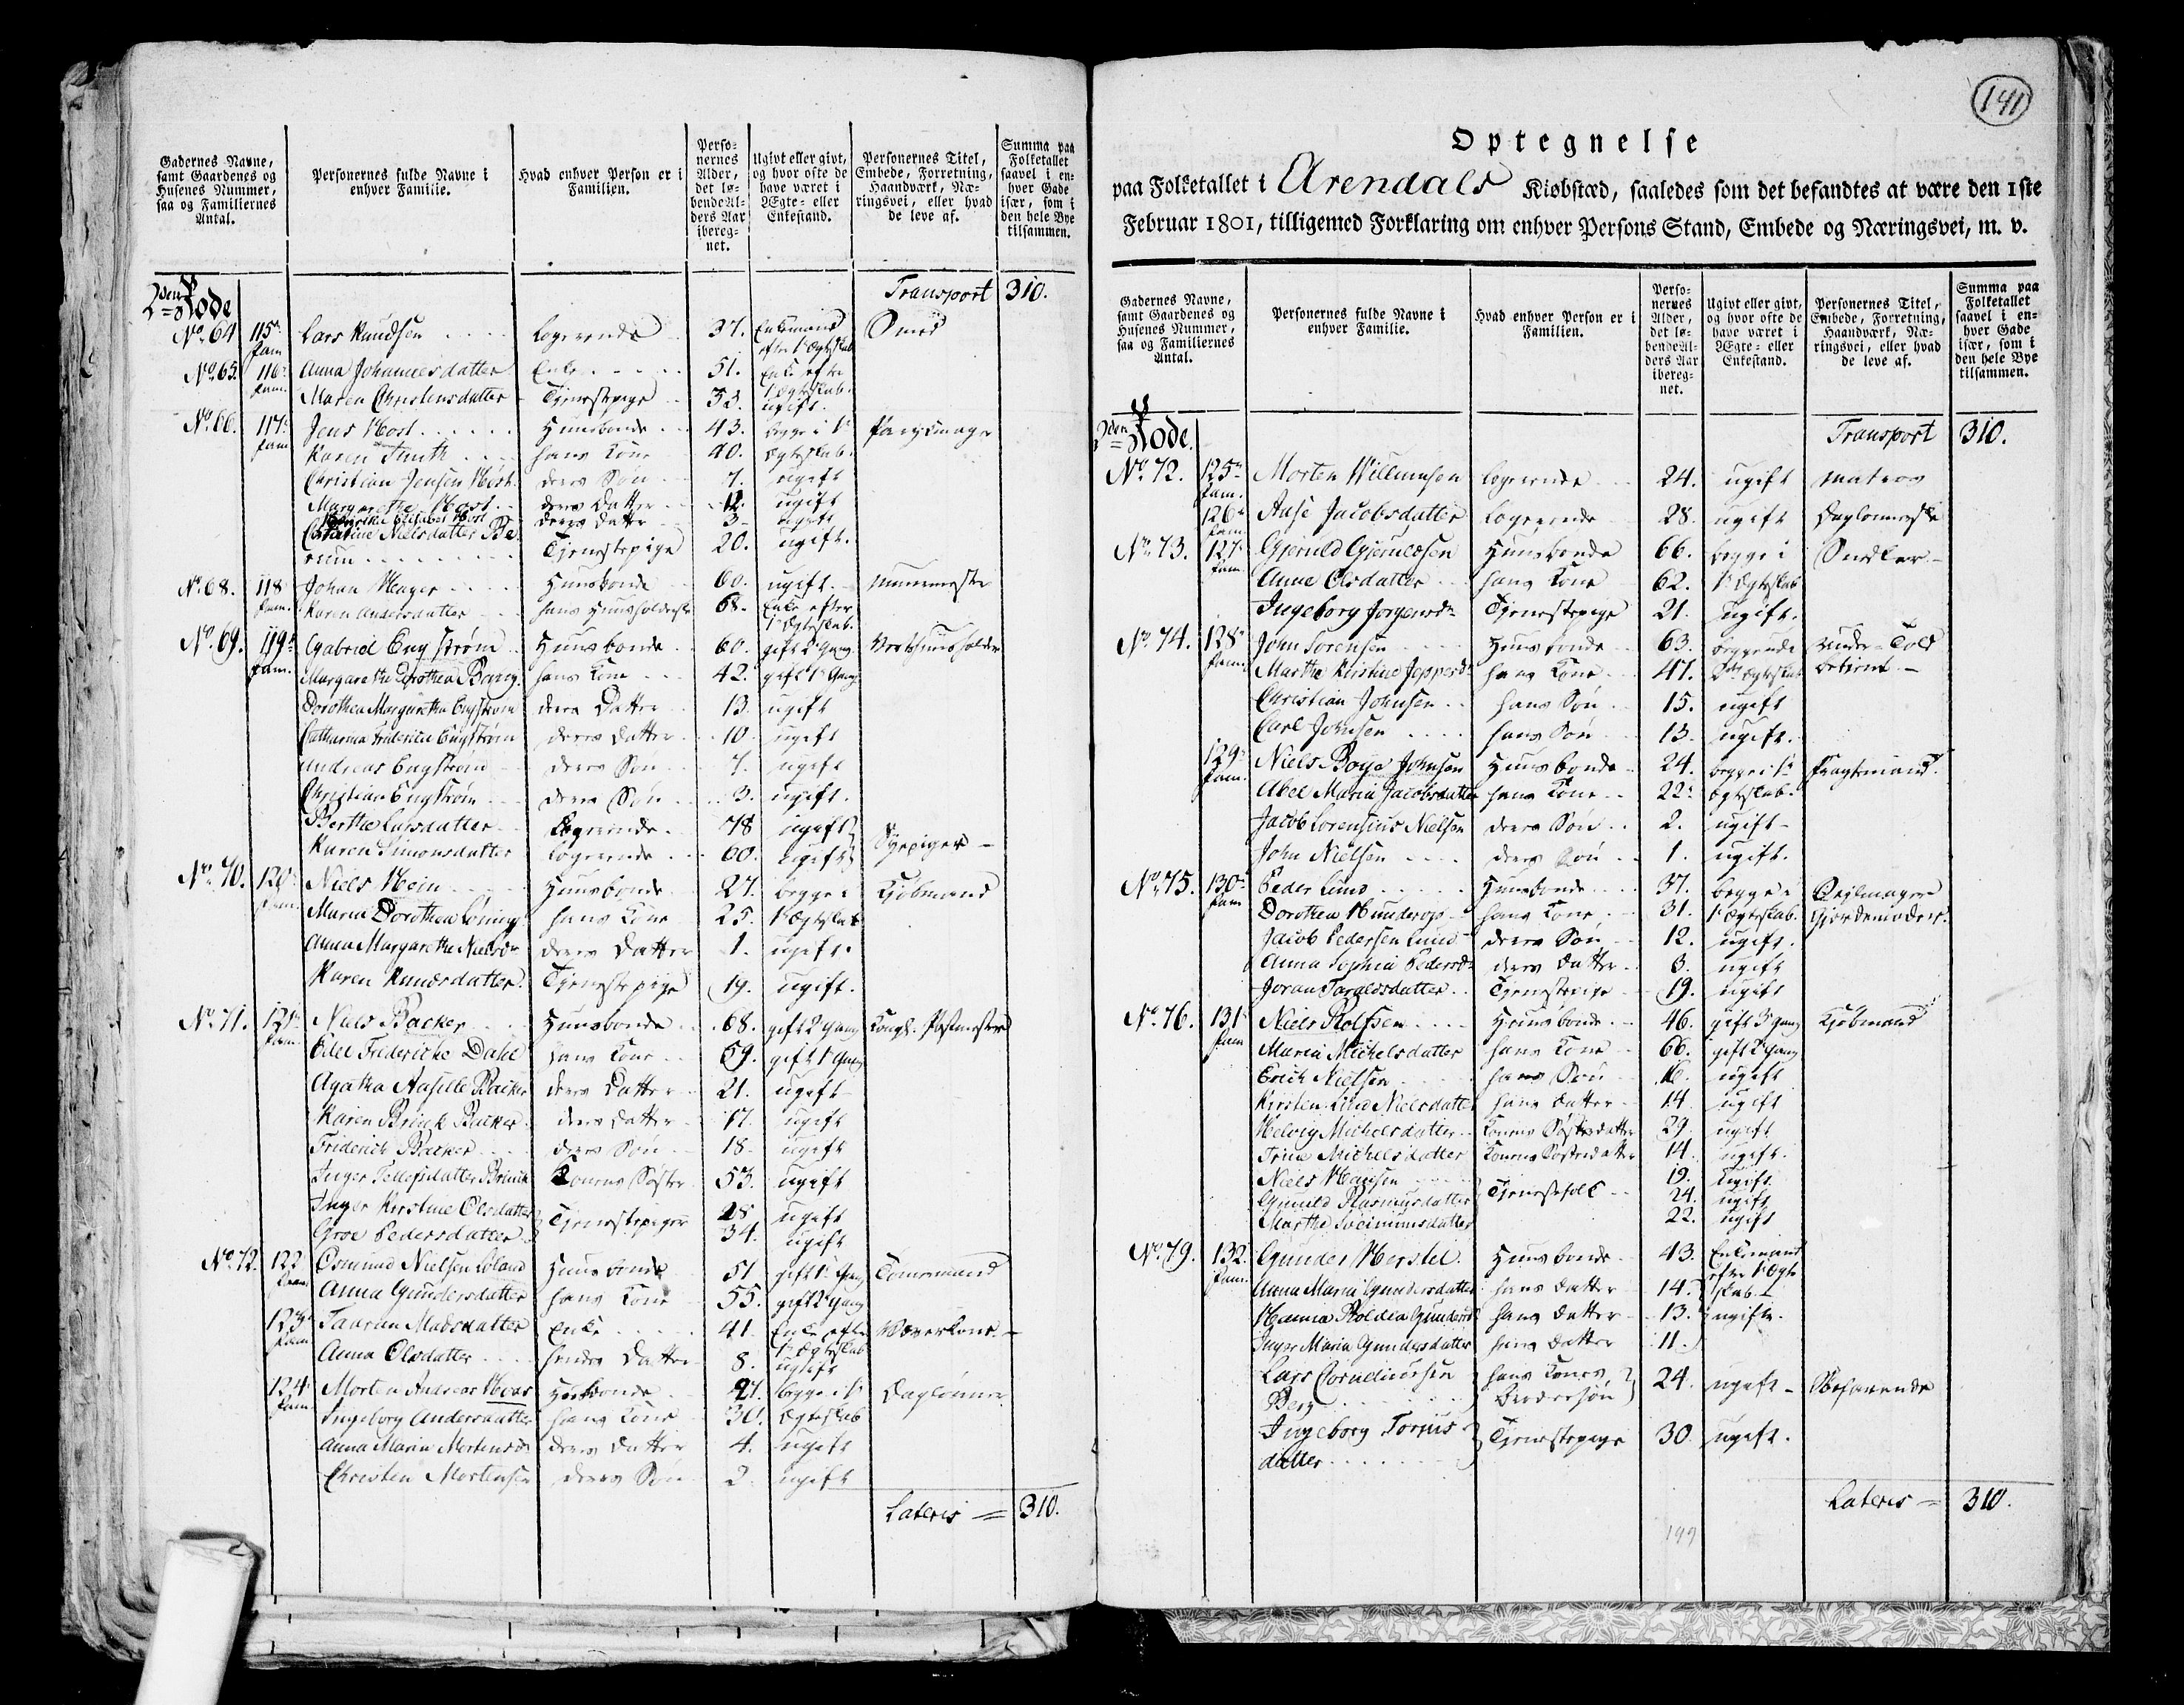 Gadernes Navne, samt Gaardenes og Husenes Nummer, saa og Familiernes Antal.
Personernes fulde Navne i enhver Familie.
Hvad enhver Person er i Familien.
Personernes Alder, det løbende Alders Aar iberegnet.
Ugivt eller givt, og hvor ofte de have været i Ægte- eller Enkestand.
Personernes Titel, Embede, Forretning, Haandværk, Næringsvei, eller hvad de leve af.
Summa paa Folketallet saavel i enhver Gade især, som i den hele Bye tilsammen.
2den Rode Transport 310.
No. 64 115de fam Lars Knudsen logerende 37. Enkemand efter 1ste Ægteskab Smed
No. 65. 116 fam. Anna Johannesdatter Enke 51. Enke efter 1 Ægteskab.
Maren Christensdatter Tjenestepige 33. ugift.
No. 66. 117 fam Jens Høst Huusbonde 43. begge i 1ste Parykmager
Karen Smith hans Kone 40. Ægteskab.
Christian Jensen Høst deres Søn 7. ugift
Margarethe Høst deres Datter 12. ugift
Elisabet Høst deres Datter 3 ugift
Nielsdatter Be
rum Tjenestepige 20. ugift.
No. 68. 118 fam. Johan Meyer Huusbonde 60. ugift. Muurmester
Karen Andersdatter hans Huusholderske 68. Enke efter 1ste Ægteskab.
No. 69. 119 fam. Gabriel Engstrøm Huusbonde 60. gift 2 Gang Vertshuusholder
Margarethe Dorothea Bang hans Kone 42. gift 1 Gang
Dorothea Margaretha Engstrøm deres Datter 13. ugift
Catharina Friderica Engstrøm deres Datter 10. ugift
Andreas Engstrøm deres Søn 7. ugift
Christian Engstrøm deres Søn 3. ugift.
Berthe Larsdatter logerende 78 ugift
Karen Simonsdatter logerende 60. ugift Syepiger
No. 70. 120 fam. Niels Hein Huusbonde 27. begge i Kjøbmand
Maria Dorothea hans Kone 25. 1ste Ægteskab
Anna Margarethe Nielsdr deres Datter 1. ugift.
Karen Knudsdatter Tjenestepige 19. ugift.
No. 71. 121 fam. Niels Backer Huusbonde 68. gift 2 Gang Kongl. Postmester
Edel Fridericke Dahl hans Kone 59. gift 1 Gang
Agatha Backer deres Datter 21. ugift
Karen Brinck Backer deres datter 17. ugift
Friderich Backer deres Søn 18. ugift
Inger Tellefsdatter Brinck Konens Søster 53. ugift
Inger Kirstine Olsdatter Tjenestepiger 28 ugift
Groe Pedersdatter 34. ugift
No. 72. 122 fam. Osmund Nielsen Huusbonde 51 gift 1 Gang
Anna Gundersdatter hans Kone 55. gift 2 Gang
123 fam Madsdatter Enke 41. Enke efter 1 Ægteskab Wæverkone
Anna Olsdatter hendes Datter 8. ugift
124 fam. Morten Andreas Huusbonde 27. begge i 1ste Daglønner
Ingeborg Andersdatter hans Kone 30. Ægteskab
Anna Maria Mortensdr deres Datter 4. ugift
Christen Mortensen deres Søn 2. ugift
Lateris = 310.
141
Optegnelse
paa Folketallet i Arendals Kiøbstæd, saaledes som det befandtes at være den 1ste
Februar 1801, tilligemed Forklaring om enhver Persons Stand, Embede og Næringsvei, m. v.
Gadernes Navne, samt Gaardenes og Husenes Nummer, saa og Familiernes Antal.
Personernes fulde Navne i enhver Familie.
Hvad enhver Person er i Familien.
Personernes Alder, det løbende Alders Aar iberegnet.
Ugivt eller givt, og hvor ofte de have været i Ægte- eller Enkestand.
Personernes Titel, Embede, Forretning, Haandværk, Næringsvei, eller hvad de leve af.
Summa paa Folketallet saavel i enhver Gade især, som i den hele Bye tilsammen.
2den Rode. Transport 310.
No. 72. 125 fam. Morten Willumsen logerende 24. ugift Matros
126 fam. Aase Jacobsdatter logerende 28. ugift
No. 73. 127 fam. Gjeruld Gjeruldsen Huusbonde 66. begge i Snedker
Anne Olsdatter hans Kone 62. 1 Ægteskab
Ingeborg Jørgensdr Tjenestepige 21. ugift.
No. 74. 128 fam. John Sørensen Huusbonde 63. begge i Under-Told
Marthe Kirstine Jeppesdr hans Kone 47. 2det Ægteskab betient
Christian Johnsen hans Søn 15. ugift
Carl Johnsen hans Søn 13. ugift.
129 fam. Niels Boye Johnsen Huusbonde 24. begge i 1ste Fragtemand.
Abel Maria Jacobsdatter hans Kone 22. Ægteskab.
Jacob Lorensius Nielsen deres Søn 2. ugift
John Nielsen deres Søn 1. ugift.
No. 75. 130 fam Peder Lund Huusbonde 37. begge i Sejlmager
Dorothea Hunderop hans Kone 31. 1 Ægteskab. Gjordemoder.
Jacob Pedersen Lund deres Søn 12. ugift.
Anna Sophia Pedersdr deres datter 3. ugift
Joran Taraldsdatter Tjenestepige 19. ugift
No. 76. 131 fam Niels Rolfsen Huusbonde 46. gift 3 Gang Kjøbmand
Maria Michelsdatter hans Kone 66. gift 2 Gang
Erich Nielsen hans Søn 16. ugift
Kirsten Nielsdatter hans datter 14 ugift
Helvig Michelsdatter Konens Søsterdatter 29. ugift
Trine Michelsdatter Konens Søsterdatter 14. ugift.
Niels Hansen 19. ugift
Gunild Rasmusdatter Tjenestefolk 24. ugift
Marthe 22. ugift
No. 79. 132. fam. Gunder Herstel. Huusbonde 43. Enkemand efter 1 Ægteskab
Anna Maria Gundersdatter hans datter 14.
Gundersdr hans datter 13. ugifte.
Inger Maria Gundersdatter hans datter 11.
Lars Corneliussen hans Kones
Berg Brodersøn 24. ugift Søefarende
Ingeborg Torjus
datter Tjenestepige 30. ugift.
Lateris = 310.
199